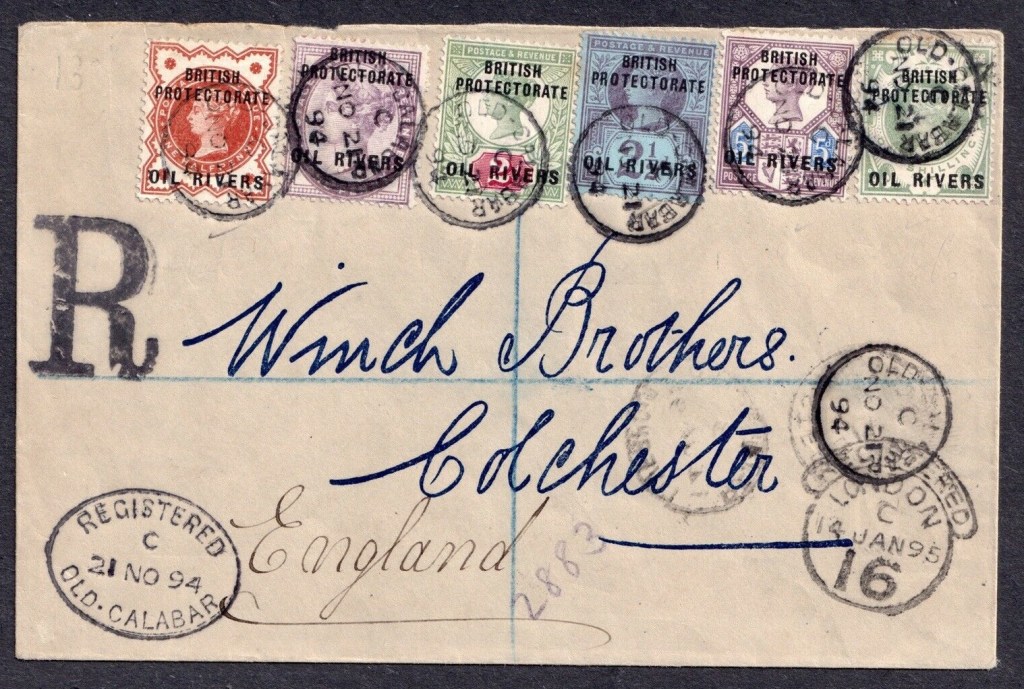 13
BRITISH PROTECTORATE
OIL RIVERS
BRITISH PROTECTORATE
OIL RIVERS
POSTAGE & REVENUE
BRITISH PROTECTORATE
OIL RIVERS
POSTAGE & REVENUE
BRITISH PROTECTORATE
OIL RIVERS
2½
BRITISH PROTECTORATE
OIL RIVERS
5d 5d
POSTAGE & REVENUE
BRITISH PROTECTORATE
OIL RIVERS
OLD CALABAR
C
NO 21
94
R
Winch Brothers.
Colchester
England
2883
REGISTERED
C
21 NO 94
OLD·CALABAR
OLD CALABAR
C
NO 21
94
REGISTERED
LONDON
C
14 JAN 95
16